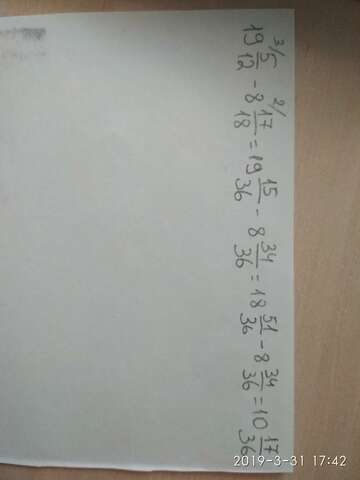 19 3/5/12 - 8 2/17/18 = 19 15/36 - 8 34/36 = 18 51/36 - 8 34/36 = 10 17/36
2019-3-31 17:42